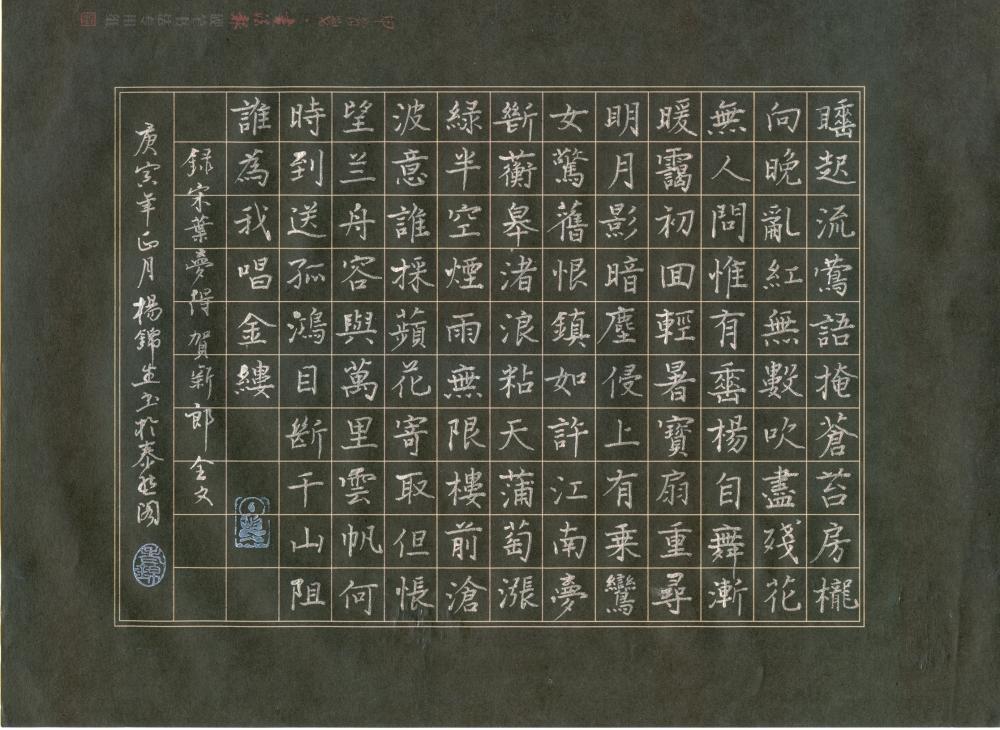 睡起流鶯語掩蒼苔房櫳
向晚亂紅無數吹盡殘花
無人問惟有垂楊自舞漸
暖靄初回輕暑寶扇重尋
明月影暗塵侵上有乘鸞
女驚舊恨鎮如許江南夢
斷蘅皋渚浪粘天蒲萄漲
綠半空煙雨無限樓前滄
波意誰採蘋花寄取但悵
望兰舟容與萬里雲帆何
時到送孤鴻目斷千山阻
誰為我唱金縷
録宋葉夢得賀新郎 全文
庚寅年正月楊錦生玉於泰然阁